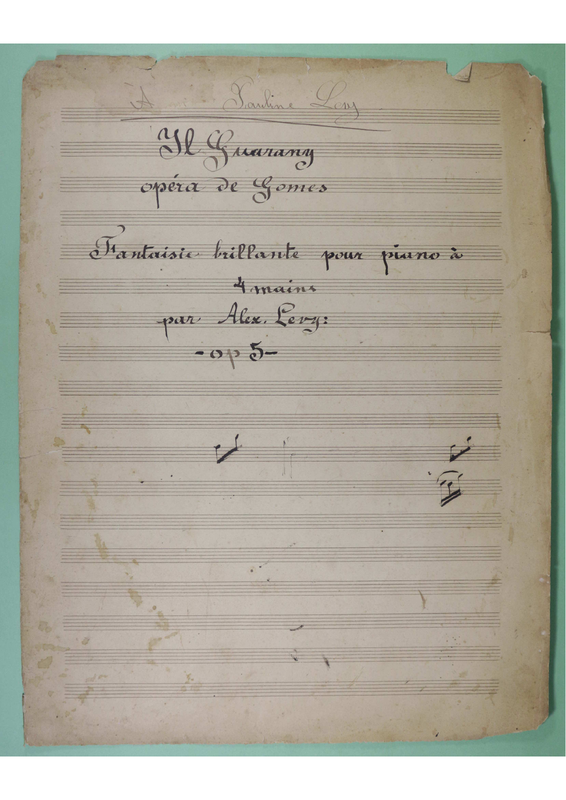 A Pauline Levy
Il Guarany
opéra de Gomes
Fantaisie brillante pour piano à
4 mains
par Alex. Levy:
- op 5 -